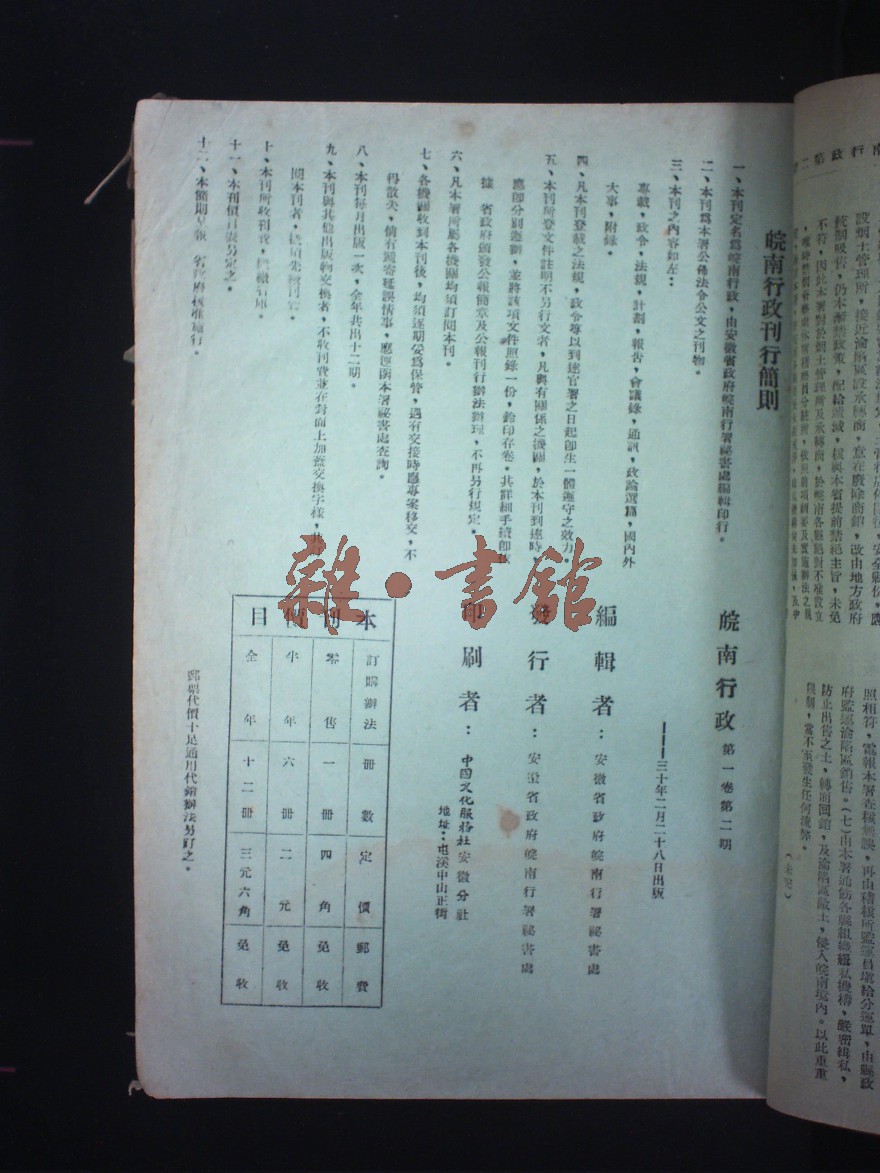 皖南行政刊行簡則
一、本刊定名為皖南行政，由安徽省政府皖南行署祕書處編輯印行。
二、本刊為本署公佈法令公文之刊物。
三、本刊之內容如左：
專載，政令，法規，計劃，報告，會議錄，通訊，政論選篇，國內外
大事，附錄。
四、凡本刊登載之法規，政令等以到達官署之日起即生一體遵守之效力。
五、本刊所登文件註明不另行文者，凡與有關係之機關，於本刊到達時，
應即分別遵辦，並將該項文件照錄一份，鈐印存卷。其詳細手續即依
據　省政府頒發公報簡章及公報刊行辦法辦理，不再另行規定。
六、凡本署所屬各機關均須訂閱本刊。
七、各機關收到本刊後，均須逐期妥為保管，遇有交接時應專案移交，不
得散失，倘有遞寄種誤情事，應逕函本署祕書處查詢。
八、本刊每月出版一次，全年共出十二期。
九、本刊與其他出版物交換者，不收刊費並在封面上加蓋交換字樣，其訂
閱本刊者，
十、本刊所收刊費，
十一、本刊價目表另定之。
十二、本簡則呈報　省政府核准施行。
皖南行政　第一卷第二期
——三十年二月二十八日出版
編輯者：安徽省政府皖南行署祕書處
發行者：安徽省政府皖南行署祕書處
印刷者：中國文化服務社安徽分社
地址：屯溪中山正街
本刊價目
訂購辦法　冊數　定價　郵費
零售　一冊　四角　免收
半年　六冊　二元　免收
全年　十二冊　三元六角　免收
郵票代價十足通用代銷辦法另訂之。
雜·書館
南行政第二
統制吸售，仍本漸禁政策，配給遞減，核與本省提前禁絕主旨，未免
不符，因此本署對於烟土管理所及承轉商，於皖南各縣絕對不准設立
照相符，電報本署查核無誤，再由稽核所監運員填給分運單，由縣政
府監運淪陷區銷售。（七）由本署通飭各縣組織緝私機構，嚴密緝私，
防止出售之土，轉而回銷，及淪陷區敵土，侵入皖南境內。以此重重
限制，當不至發生任何流弊。
（未完）